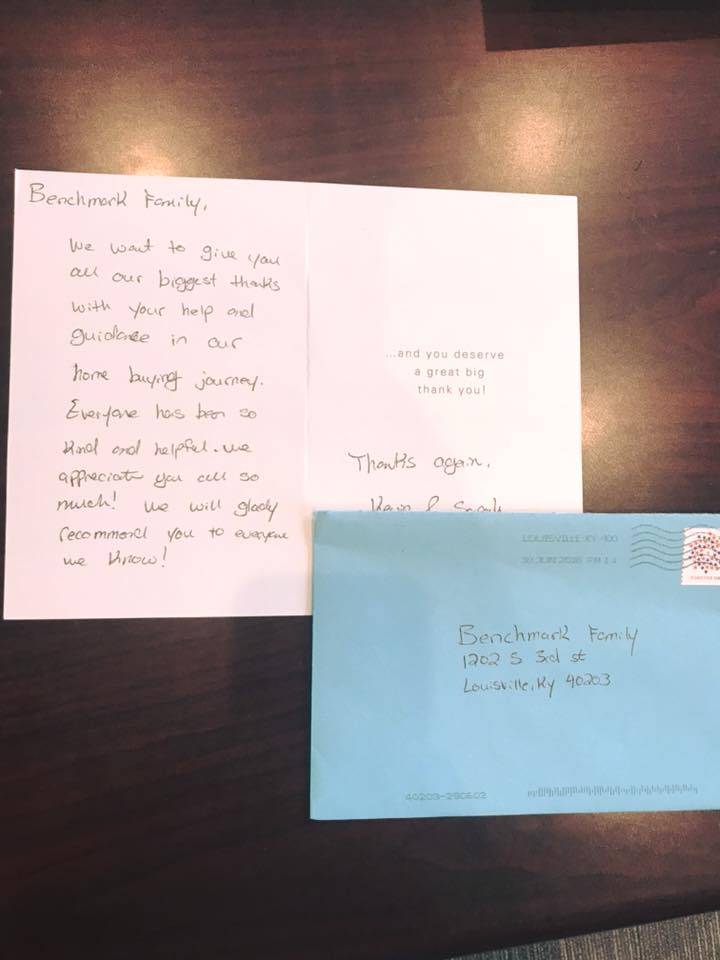 Benchmark Family,
We want to give you
all our biggest thanks
with your help and
guidance in our
home buying journey.
Everyone has been so
kind and helpful. we
appreciate you all so
much! We will glady
recommend you to everyone
we know!
...and you deserve
a great big
thank you!
Thanks again,
LOUISVILLE KY 400
Benchmark Family
1202 S 3rd st
Louisville, Ky 40203